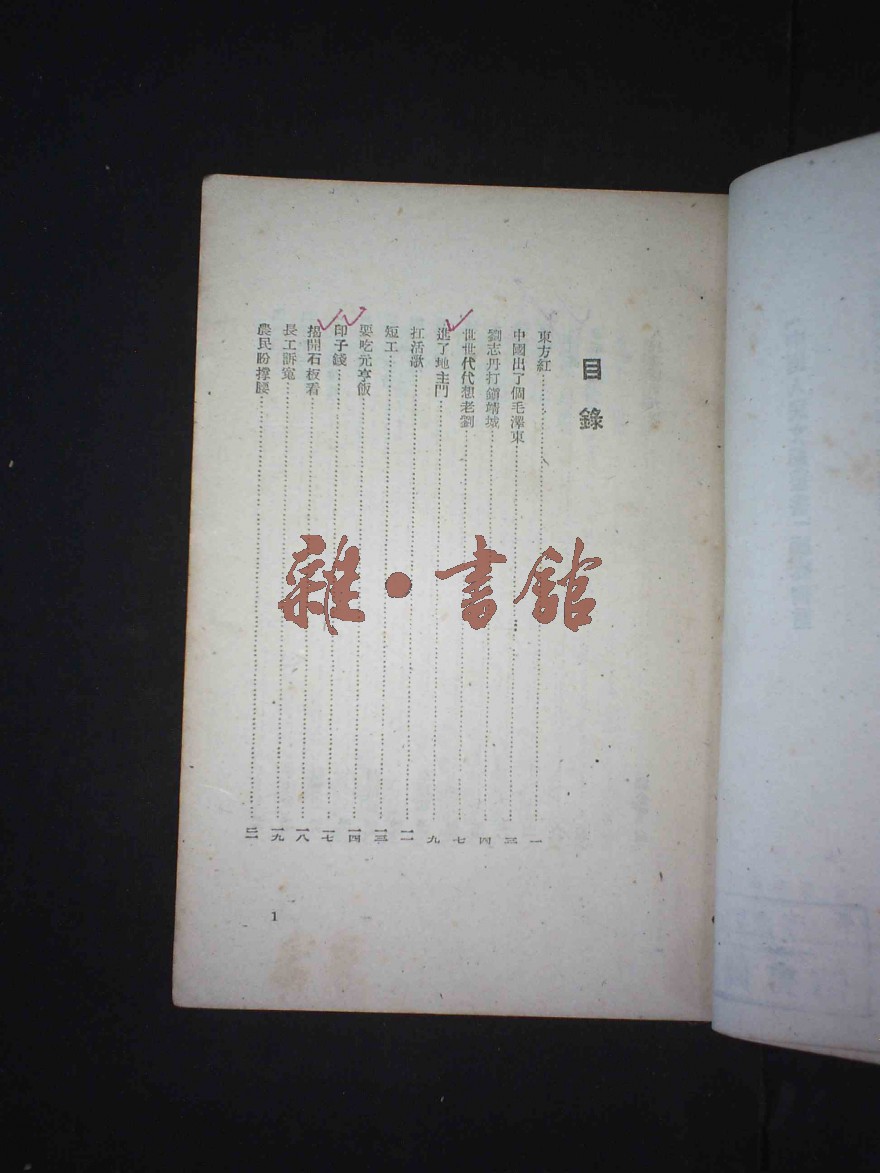 目錄
東方紅……一
中國出了個毛澤東……三
劉志丹打鎮靖城……四
世世代代想老劉……七
進了地主門……九
扛活歌……一一
短工……一三
要吃元亨飯……一四
印子錢……一七
揭開石板看……一八
長工訴寃……一九
農民盼撐腰……二一
1
雜·書館